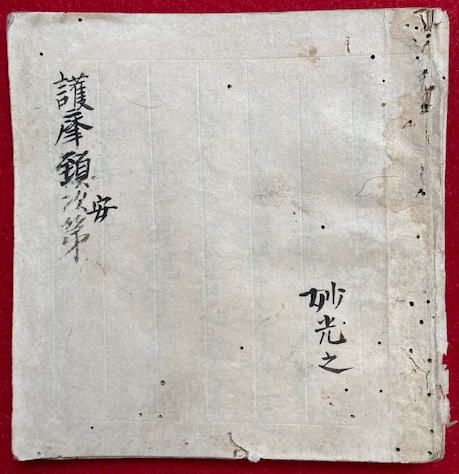 妙光之
安
護摩鎮次第